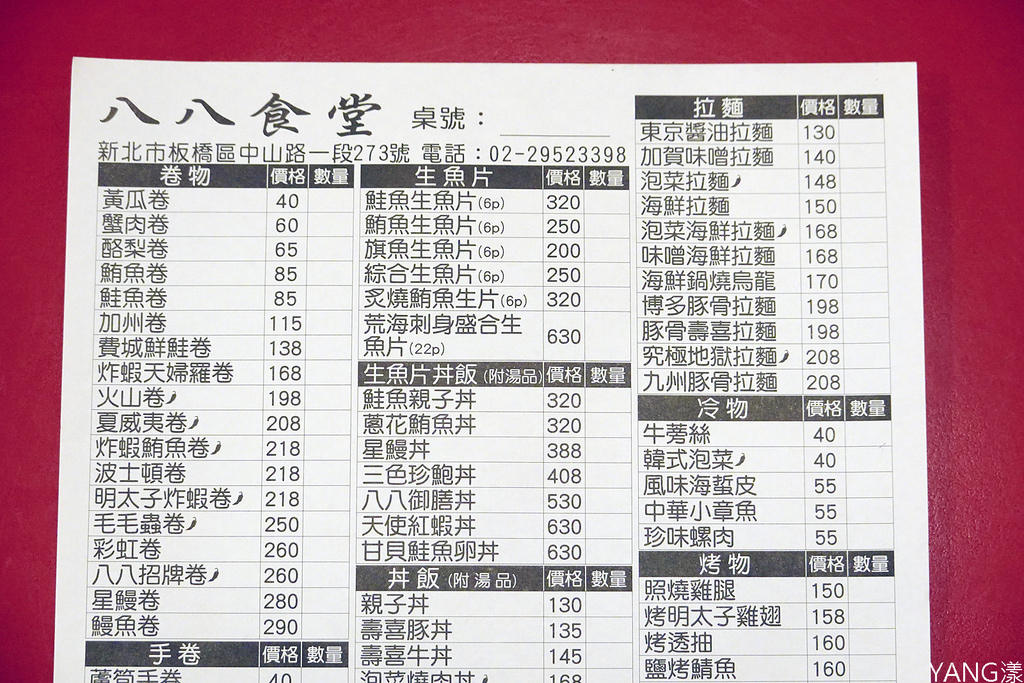 八八食堂 桌號：
新北市板橋區中山路一段273號 電話：02-29523398
卷物 價格 數量
黃瓜卷 40
蟹肉卷 60
酪梨卷 65
鮪魚卷 85
鮭魚卷 85
加州卷 115
費城鮮鮭卷 138
炸蝦天婦羅卷 168
火山卷 198
夏威夷卷 208
炸蝦鮪魚卷 218
波士頓卷 218
明太子炸蝦卷 218
毛毛蟲卷 250
彩虹卷 260
八八招牌卷 260
星鰻卷 280
鰻魚卷 290
手卷 價格 數量
蘆筍手卷 40
生魚片 價格 數量
鮭魚生魚片(6p) 320
鮪魚生魚片(6p) 250
旗魚生魚片(6p) 200
綜合生魚片(6p) 250
炙燒鮪魚生片(6p) 320
荒海刺身盛合生
魚片(22p) 630
生魚片丼飯(附湯品) 價格 數量
鮭魚親子丼 320
蔥花鮪魚丼 320
星鰻丼 388
三色珍鮑丼 408
八八御膳丼 530
天使紅蝦丼 630
甘貝鮭魚卵丼 630
丼飯(附湯品) 價格 數量
親子丼 130
壽喜豚丼 135
壽喜牛丼 145
泡菜燒肉丼 168
拉麵 價格 數量
東京醬油拉麵 130
加賀味噌拉麵 140
泡菜拉麵 148
海鮮拉麵 150
泡菜海鮮拉麵 168
味噌海鮮拉麵 168
海鮮鍋燒烏龍 170
博多豚骨拉麵 198
豚骨壽喜拉麵 198
究極地獄拉麵 208
九州豚骨拉麵 208
冷物 價格 數量
牛蒡絲 40
韓式泡菜 40
風味海蜇皮 55
中華小章魚 55
珍味螺肉 55
烤物 價格 數量
照燒雞腿 150
烤明太子雞翅 158
烤透抽 160
鹽烤鯖魚 160
YANG漾